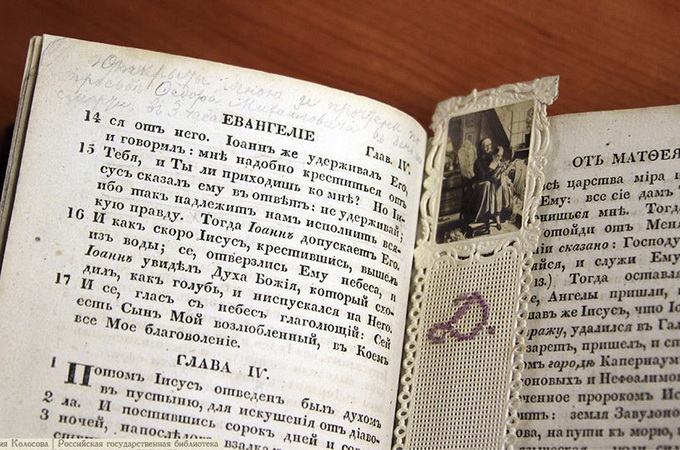 открыты мною и прочтены по
просьбѣ Федора Михайловича въ день
смерти, въ 3 часа
ЕВАНГЕЛІЕ Глав. IV.
14 ся отъ него. Іоаннъ же удерживалъ Его,
и говорилъ: мнѣ надобно креститься отъ
15 Тебя, и Ты ли приходишь ко мнѣ? Но Іи-
сусъ сказалъ ему въ отвѣтъ: не удерживай;
ибо такъ надлежитъ намъ исполнить вся-
кую правду. Тогда Іоаннъ допускаетъ Его.
16 И какъ скоро Іисусъ, крестившись, вышелъ
изъ воды; се, отверзлись Ему небеса, и
Іоаннъ увидѣлъ Духа Божія, который схо-
дилъ, какъ голубь, и ниспускался на Него.
17 И се, гласъ съ небесъ глаголющій: Сей
есть Сынъ Мой возлюбленный, въ Коемъ
все Мое благоволеніе.
ГЛАВА IV.
1 Потомъ Іисусъ отведенъ былъ духомъ
въ пустыню, для искушенія отъ діаво-
2 ла. И постившись сорокъ дней и сорокъ
3 ночей, напослѣдокъ взалкалъ
Д.
ОТЪ МАТѲЕЯ
всѣ царства міра и
Ему: все сіе дамъ Т
нишься мнѣ. Тогда
отойди отъ Меня
сказано: Господу
и служи Ему
13.) Тогда оставля
се, Ангелы пришли, и
же Іисусъ, что І
ражу, удалился въ Гал
заретъ, пришелъ, и с
городѣ Капернаумѣ
оновыхъ и Нефѳалимо
ченное пророкомъ Ис
щитъ: земля Завулоно
на пути къ морю,
ия Колосова | Российская государственная библиотека